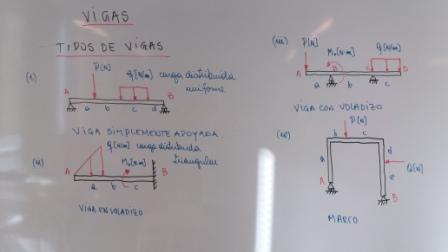 VIGAS
TIPOS DE VIGAS
(i) P[N] q[N/m] carga distribuida
uniforme
A B
a b c d
VIGA SIMPLEMENTE APOYADA
(ii) q[N/m] carga distribuida
triangular
M₀[N·m]
A B
a b c
VIGA EN VOLADIZO
(iii) P[N] M₀[N·m] q[N/m]
A B C
a b c
VIGA CON VOLADIZO
(iv) P[N]
b c
a d
Q[N]
e
A B
MARCO